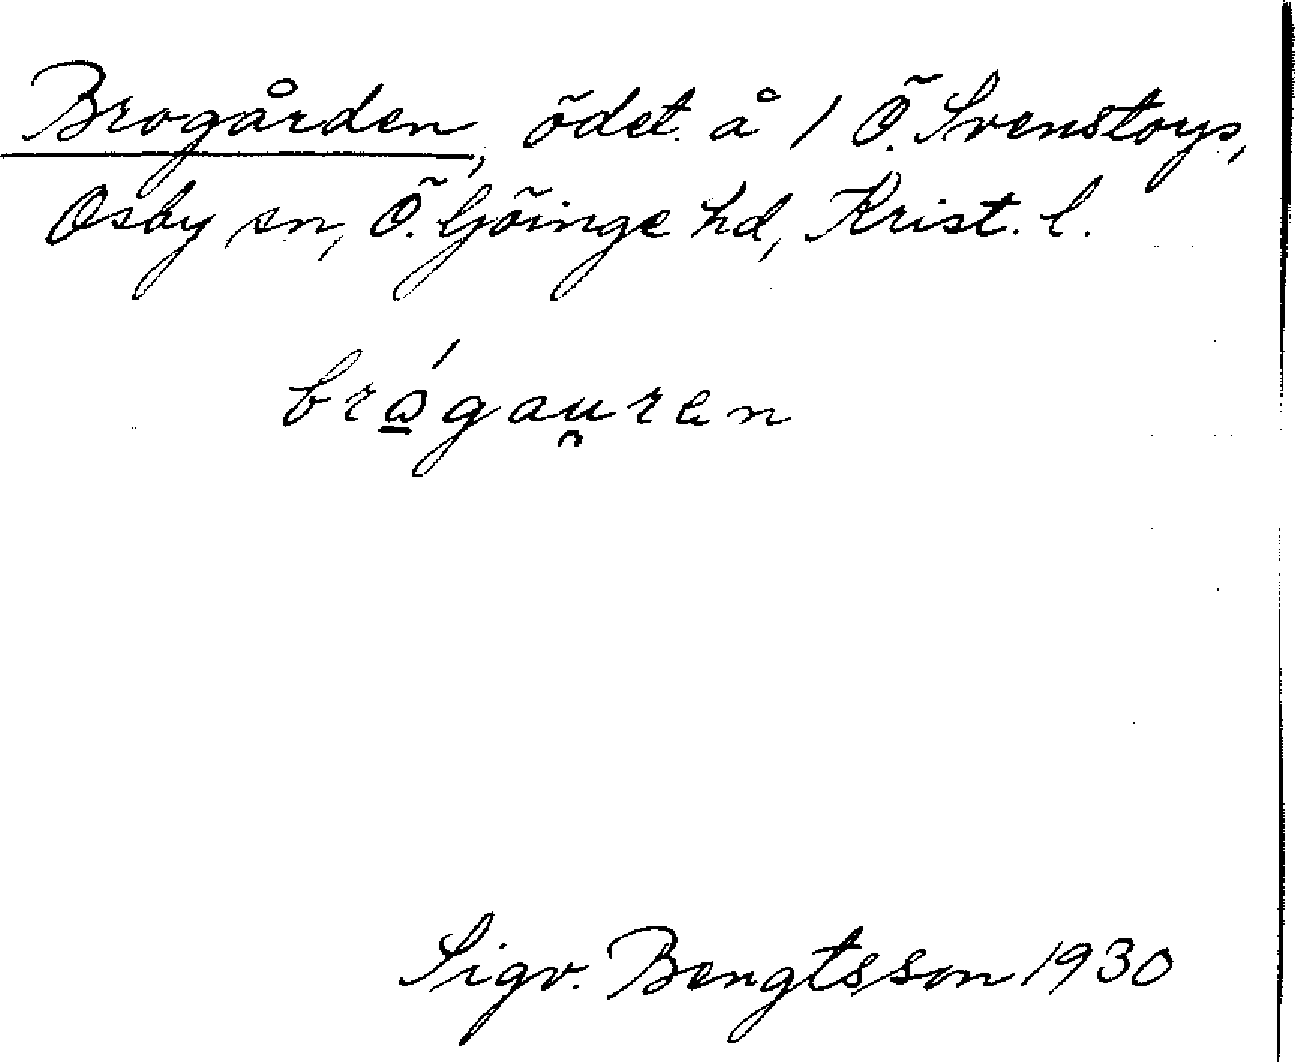 Brogården, ödet. å 1 Ö. Svenstorps,
Osby sn, Ö. Göinge hd, Krist. l.
bró̱gau̯ren
Sigv. Bengtsson 1930